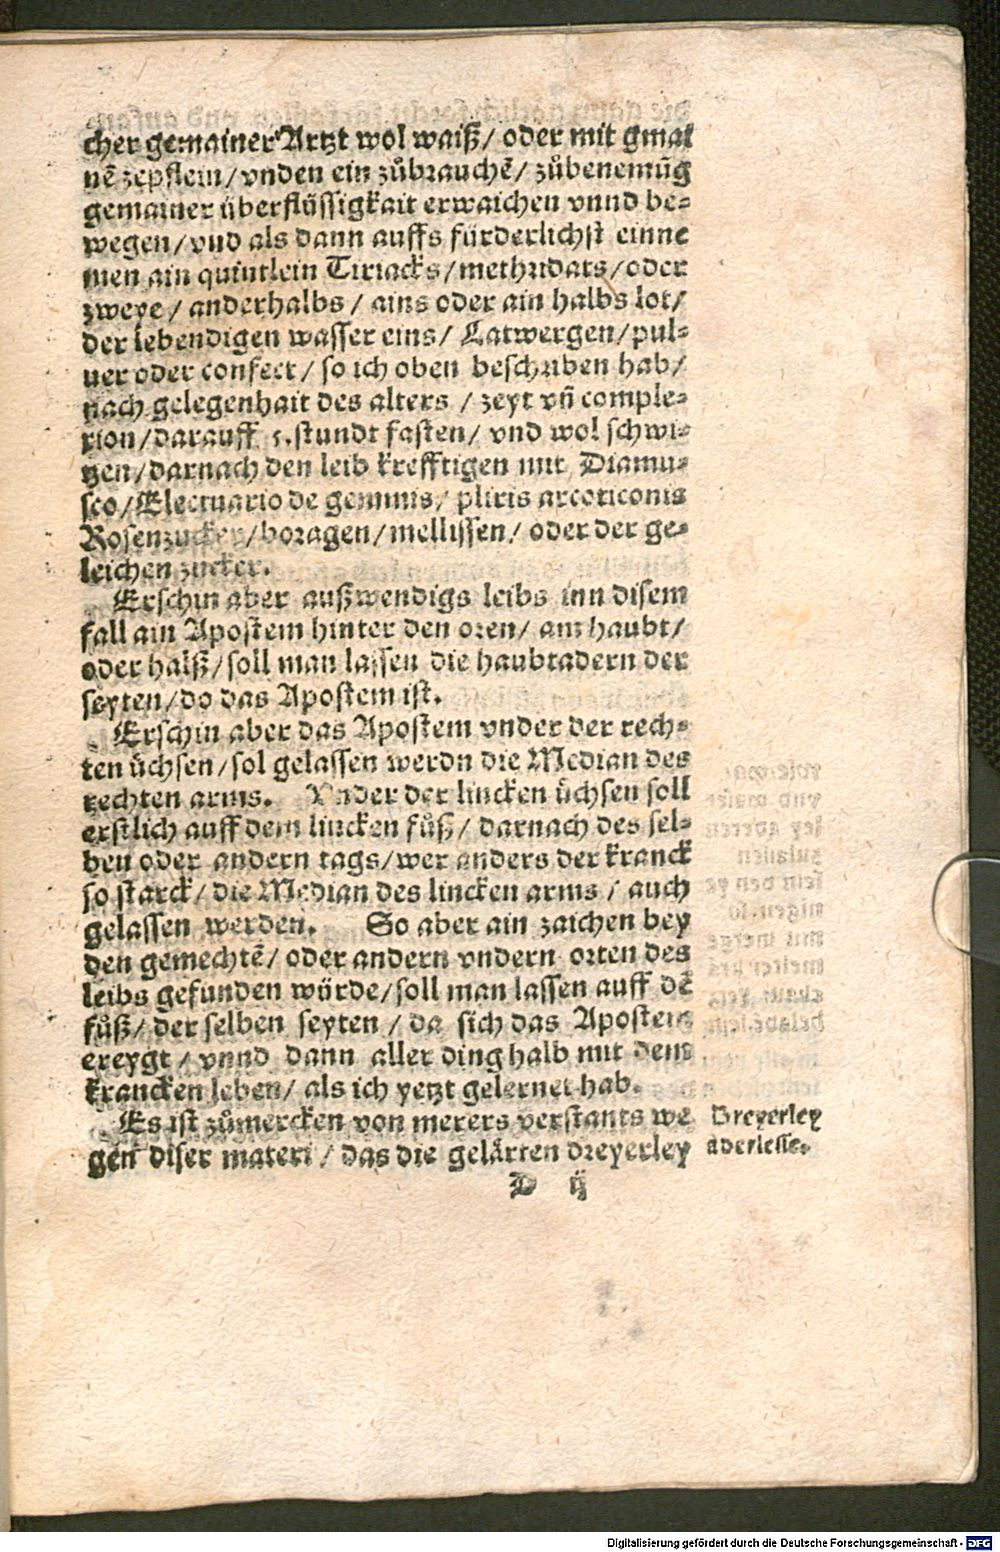 cher gemainer Artzt wol waiß / oder mit gmai
nẽ zepflein / vnden ein zůbrauchẽ / zůbenemũg
gemainer überflüssigkait erwaichen vnnd be⸗
wegen / vnd als dann auffs fürderlichst einne
men ain quintlein Tiriacks / methridats / oder
zweye / anderhalbs / ains oder ain halbs lot /
der lebendigen wasser eins / Latwergen / pul⸗
uer oder confect / so ich oben beschriben hab /
nach gelegenhait des alters / zeyt vñ comple⸗
xion / darauff 5. stundt fasten / vnd wol schwi⸗
tzen / darnach den leib krefftigen mit Diamu⸗
sco / Electuario de gemmis / pliris arcoticonis
Rosenzucker / boragen / mellissen / oder der ge⸗
leichen zucker.
Erschin aber außwendigs leibs inn disem
fall ain Apostem hinter den oren / am haubt /
oder halß / soll man lassen die haubtadern der
seyten / do das Apostem ist.
Erschin aber das Apostem vnder der rech⸗
ten üchsen / sol gelassen werdn die Median des
rechten arms. Vnder der lincken üchsen soll
erstlich auff dem lincken fůß / darnach des sel⸗
ben oder andern tags / wer anders der kranck
so starck / die Median des lincken arms / auch
gelassen werden. So aber ain zaichen bey
den gemechtẽ / oder andern vndern orten des
leibs gefunden würde / soll man lassen auff dẽ
fůß / der selben seyten / da sich das Apostem
ereygt / vnnd dann aller ding halb mit dem
krancken leben / als ich yetzt gelernet hab.
Es ist zůmercken von merers verstants we
gen diser materi / das die gelärten dreyerley
Dreyerley
aderlesse.
D ij
Digitalisierung gefördert durch die Deutsche Forschungsgemeinschaft - DFG